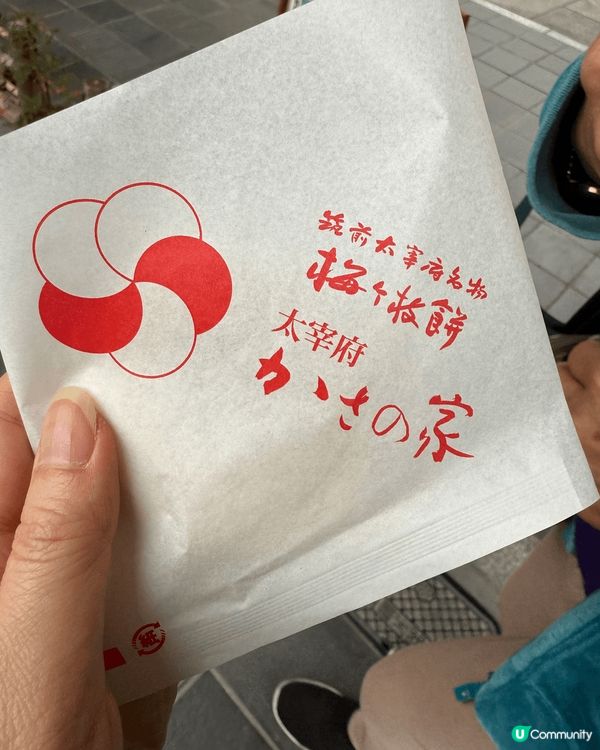 筑前太宰府名物
梅ヶ枝餅
太宰府
かさの家
紙
U Community